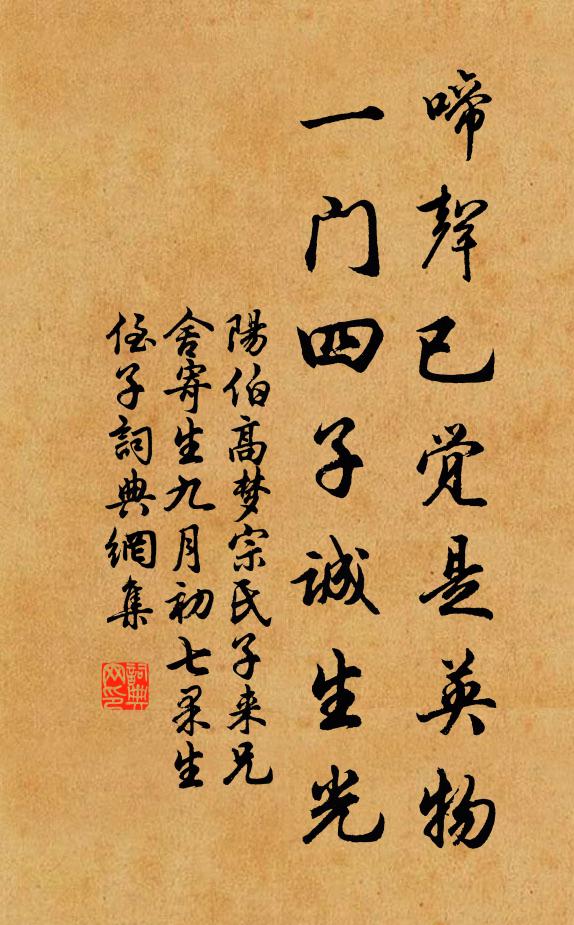 啼聲已觉是英物
一门四子誠生光
陽伯高梦宗氏子来兄
舍寄生九月初七果生
侄子詞典網集
詞典网印